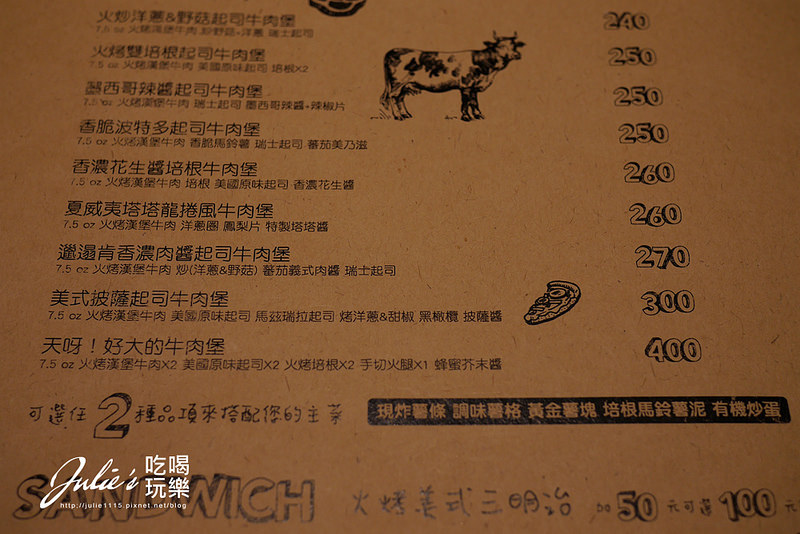 火炒洋蔥&野菇起司牛肉堡 240
7.5 oz 火烤漢堡牛肉 炒野菇+洋蔥 瑞士起司
火烤雙培根起司牛肉堡 250
7.5 oz 火烤漢堡牛肉 美國原味起司 培根X2
墨西哥辣醬起司牛肉堡 250
7.5 oz 火烤漢堡牛肉 瑞士起司 墨西哥辣醬+辣椒片
香脆波特多起司牛肉堡 250
7.5 oz 火烤漢堡牛肉 香脆馬鈴薯 瑞士起司 蕃茄美乃滋
香濃花生醬培根牛肉堡 260
7.5 oz 火烤漢堡牛肉 培根 美國原味起司 香濃花生醬
夏威夷塔塔龍捲風牛肉堡 260
7.5 oz 火烤漢堡牛肉 洋蔥圈 鳳梨片 特製塔塔醬
邋遢肯香濃肉醬起司牛肉堡 270
7.5 oz 火烤漢堡牛肉 炒(洋蔥&野菇) 蕃茄義式肉醬 瑞士起司
美式披薩起司牛肉堡 300
7.5 oz 火烤漢堡牛肉 美國原味起司 馬茲瑞拉起司 烤洋蔥&甜椒 黑橄欖 披薩醬
天呀！好大的牛肉堡 400
7.5 oz 火烤漢堡牛肉X2 美國原味起司X2 火烤培根X2 手切火腿X1 蜂蜜芥末醬
可選任2種品項來搭配您的主菜 現炸薯條 調味薯格 黃金薯塊 培根馬鈴薯泥 有機炒蛋
SANDWICH 火烤美式三明治 加50元可選100元
Julie's 吃喝玩樂
http://julie1115.pixnet.net/blog